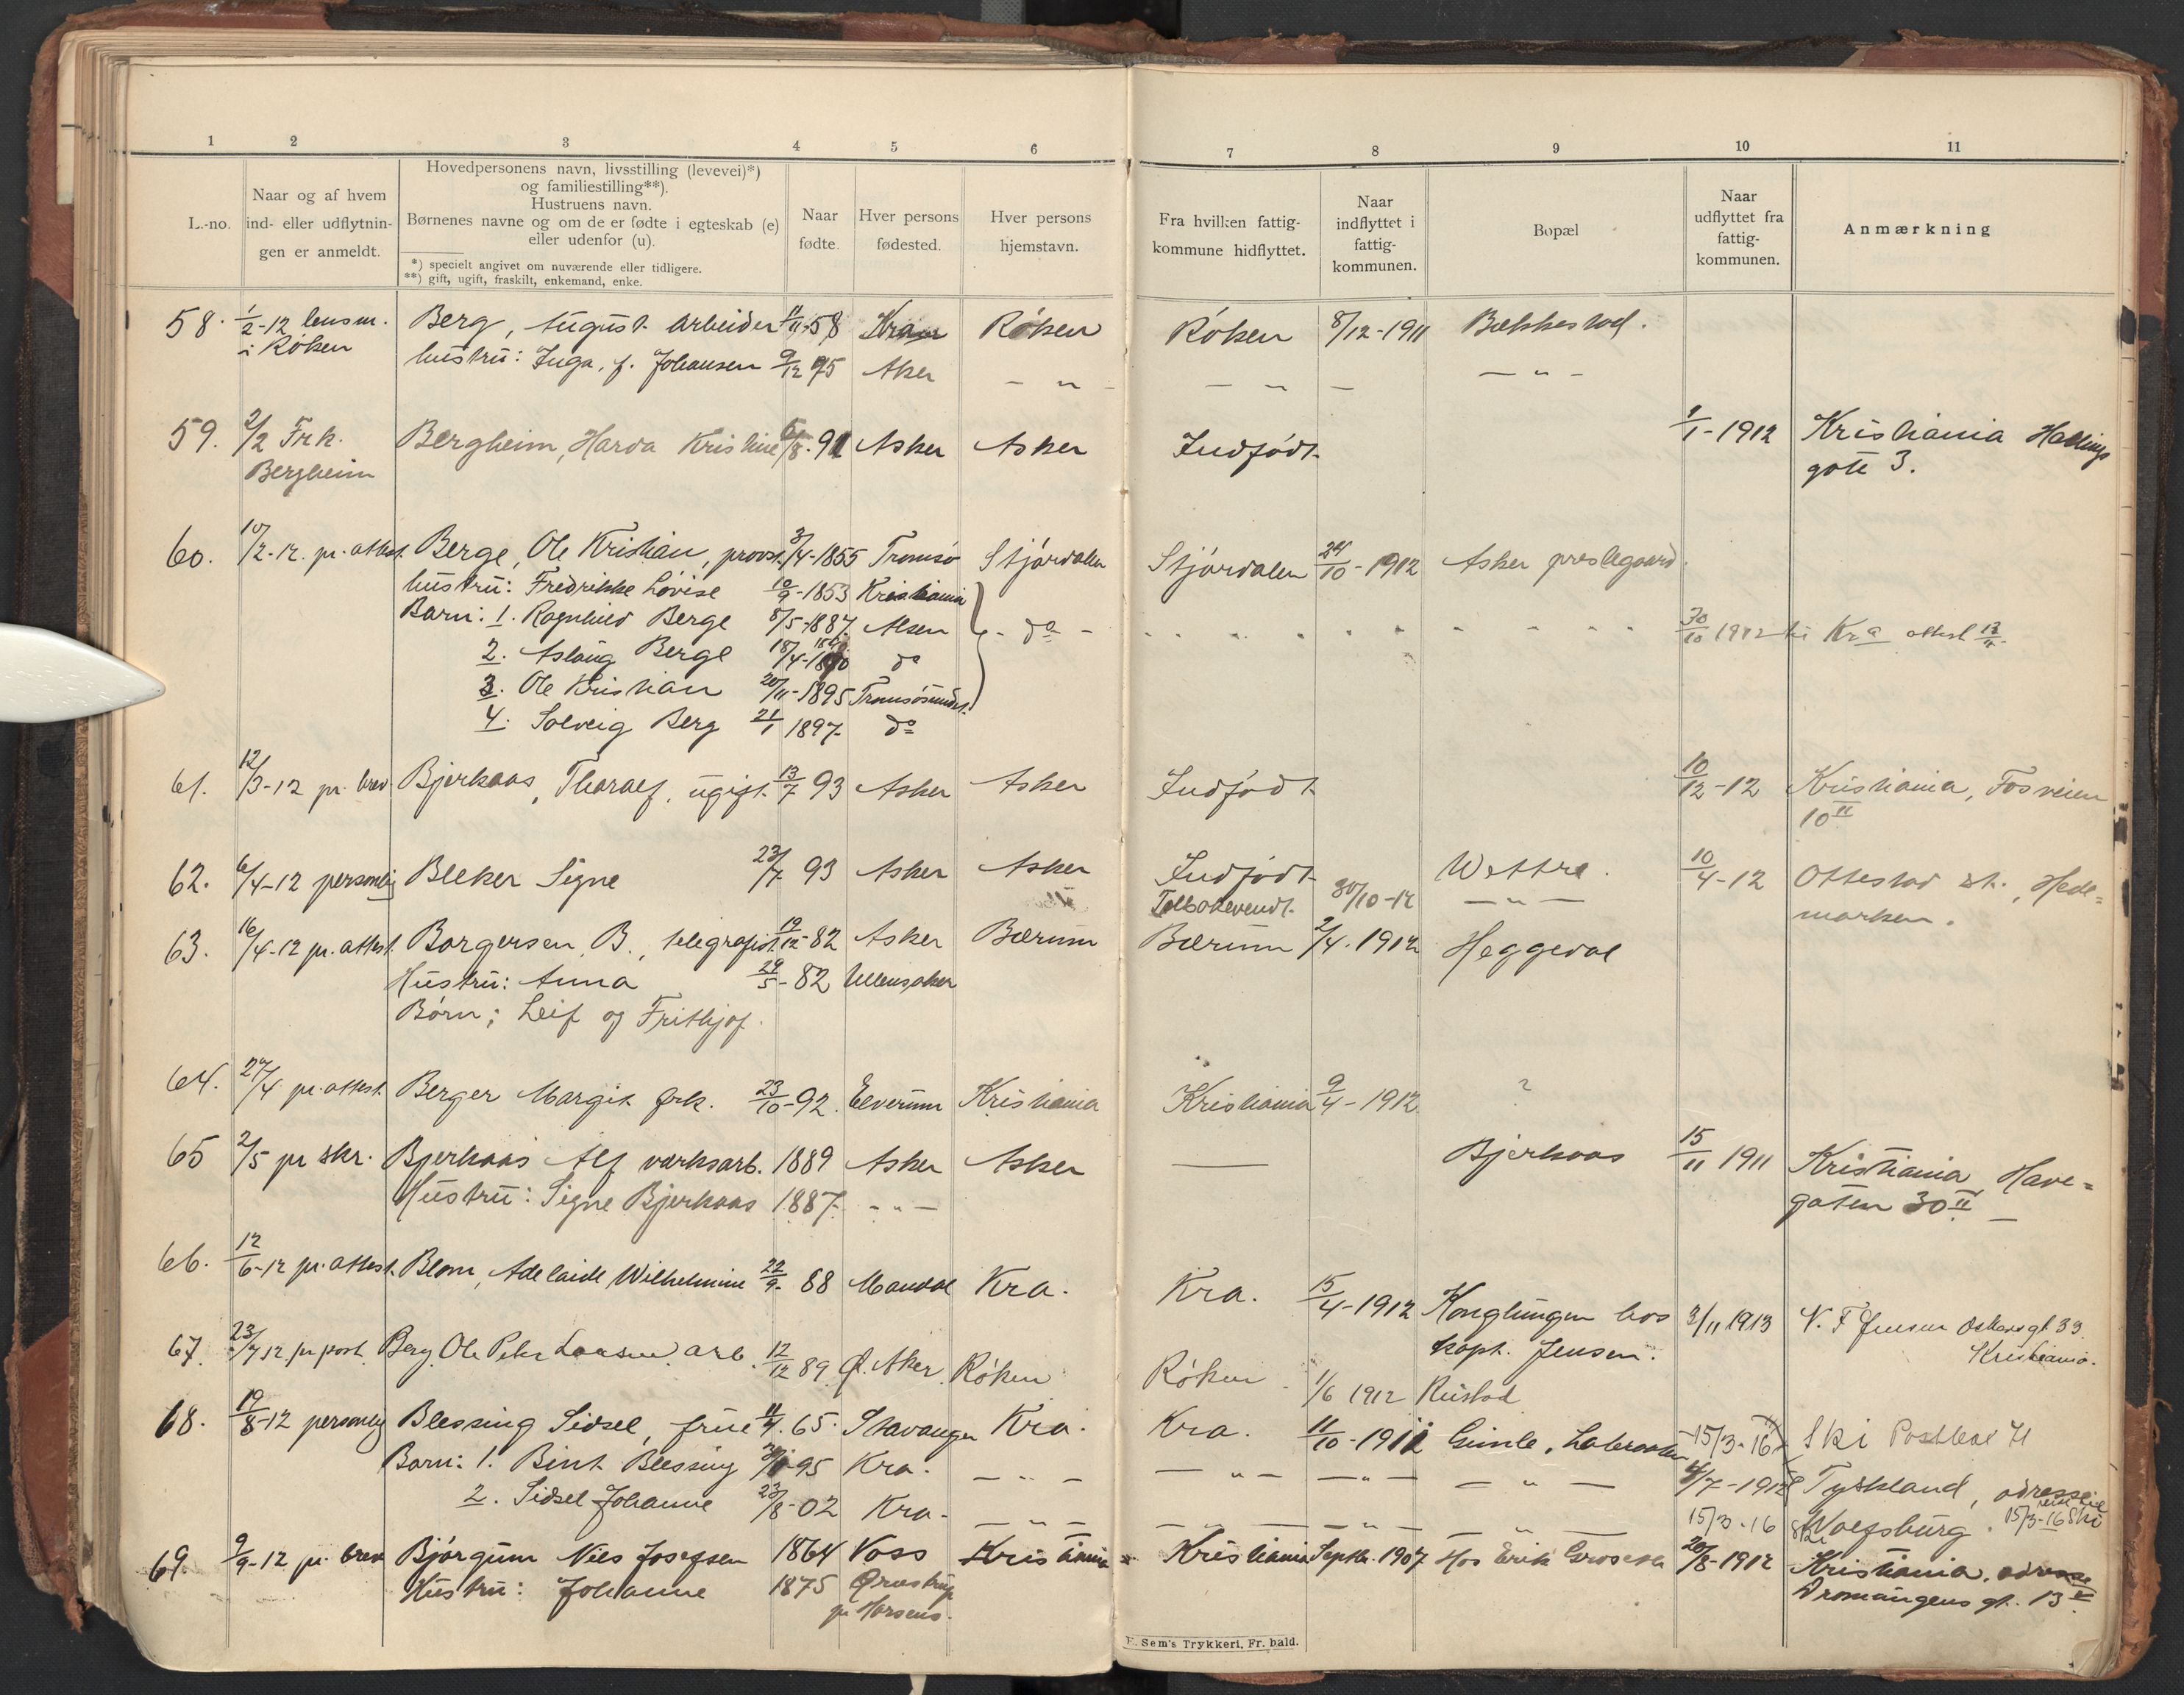 1 2 3 4 5 6 7 8 9 10 11
L.-no.
Naar og af hvem
ind- eller udflytnin-
gen er anmeldt.
Hovedpersonens navn, livsstilling (levevei)*)
og familiestilling**).
Hustruens navn.
Børnenes navne og om de er fødte i egteskab (e)
eller udenfor (u).
*) specielt angivet om nuværende eller tidligere.
**) gift, ugift, fraskilt, enkemand, enke.
Naar
fødte.
Hver persons
fødested.
Hver persons
hjemstavn.
Fra hvilken fattig-
kommune hidflyttet.
Naar
indflyttet i
fattig-
kommunen.
Bopæl
Naar
udflyttet fra
fattig-
kommunen.
Anmærkning
58. 1/2-12 lensm. Berg, August arbeider 11-58 Røken Røken 8/12-1911 Bækkestad.
i Røken hustru: Inga, f. Johansen 9/12 75 Aker - " - - " - - " -
59. 2/2 Frk. Bergheim, Harda Kristine 6/8-91 Asker Asker Indfødt 1/1-1912 Kristiania Hallings
Bergheim gate 3.
60. 10/2-12. pr. attest. Berge, Ole Kristian, provst. 3/4-1855 Tromsø Stjørdalen Stjørdalen 24/10-1912 Asker prestegaard.
hustru: Fredrikke Lovise 10/9-1853 Kristiania
Barn: 1. Ragnhild Berge 8/5-1887. Alsen - do - 30/10 1912 til Kra attest
2. Aslaug Berge 18/4-1890 do
3. Ole Kristian 20/11-1895 Tromsøsundet.
4. Solveig Berg 21/1 1897. do
61. 12/3-12 pr. brev Bjerkaas, Tharalf, ugift. 13/7 93 Asker Asker Indfødt 10/12-12 Kristiania, Fosveien
10 II
62. 6/4-12 personlig Bleker Signe 23/7 93 Asker Asker Indfødt Wettre. 10/4-12 Ottestad st., Hede=
Tilbakevendt. 30/10-12 - " - marken.
63. 16/4-12 pr. attest. Borgersen B., telegrafist. 19/12-82 Asker Bærum Bærum 2/4. 1912 Heggedal
Hustru: Anna 29/5-82 Ullensaker
Børn; Leif og Frithjof.
64. 27/4 pr. attest. Berger Margit frk. 23/10-92. Elverum Kristiania Kristiania 9/4-1912 ?
65 2/5 pr skr. Bjerkaas Alf værksarb. 1889 Asker Asker — Bjerkaas 15/11 1911 Kristiania Have=
Hustru: Signe Bjerkaas 1887. - " - gaten 30 II
66. 12/6-12 pr. attest. Blom, Adelaide Wilhelmine 22/9-88 Mandal Kra. Kra. 15/4-1912 Konglungen hos 3/11 1913 N. F Jensen Oskarsgt. 33.
kapt. Jensen. Kristiania.
67. 23/7 12. pr post. Berg, Ole Peter Laasen arb. 12/12 89 Ø. Aker Røken Røken 1/6 1912 Rustad
68. 19/8-12 personlig Blessing Sidsel, frue 11/4. 65. Stavanger Kra. Kra. 11/10-1911 Gimle, 15/3-16 Ski Postboks 71
Barn: 1. Bint Blessing 95 Kra. - " - - " - - " - - " - /7-1912 Tyskland, adresse
2. Sidsel Johanne 23/8-02 Kra. - " - - " - - " - - " - 15/3-16 Ski Wolfsburg. 15/3-16 Ski
69. 9/9-12 pr. brev Bjørgum Nils Josefsen 1864 Voss Kristiania Kristiania Septbr. 1907 Hos Erik 20/8-1912 Kristiania. adresse
Hustru: Johanne 1875 pr Horsens. gt. 13
E. Sem's Trykkeri, Fr. hald.